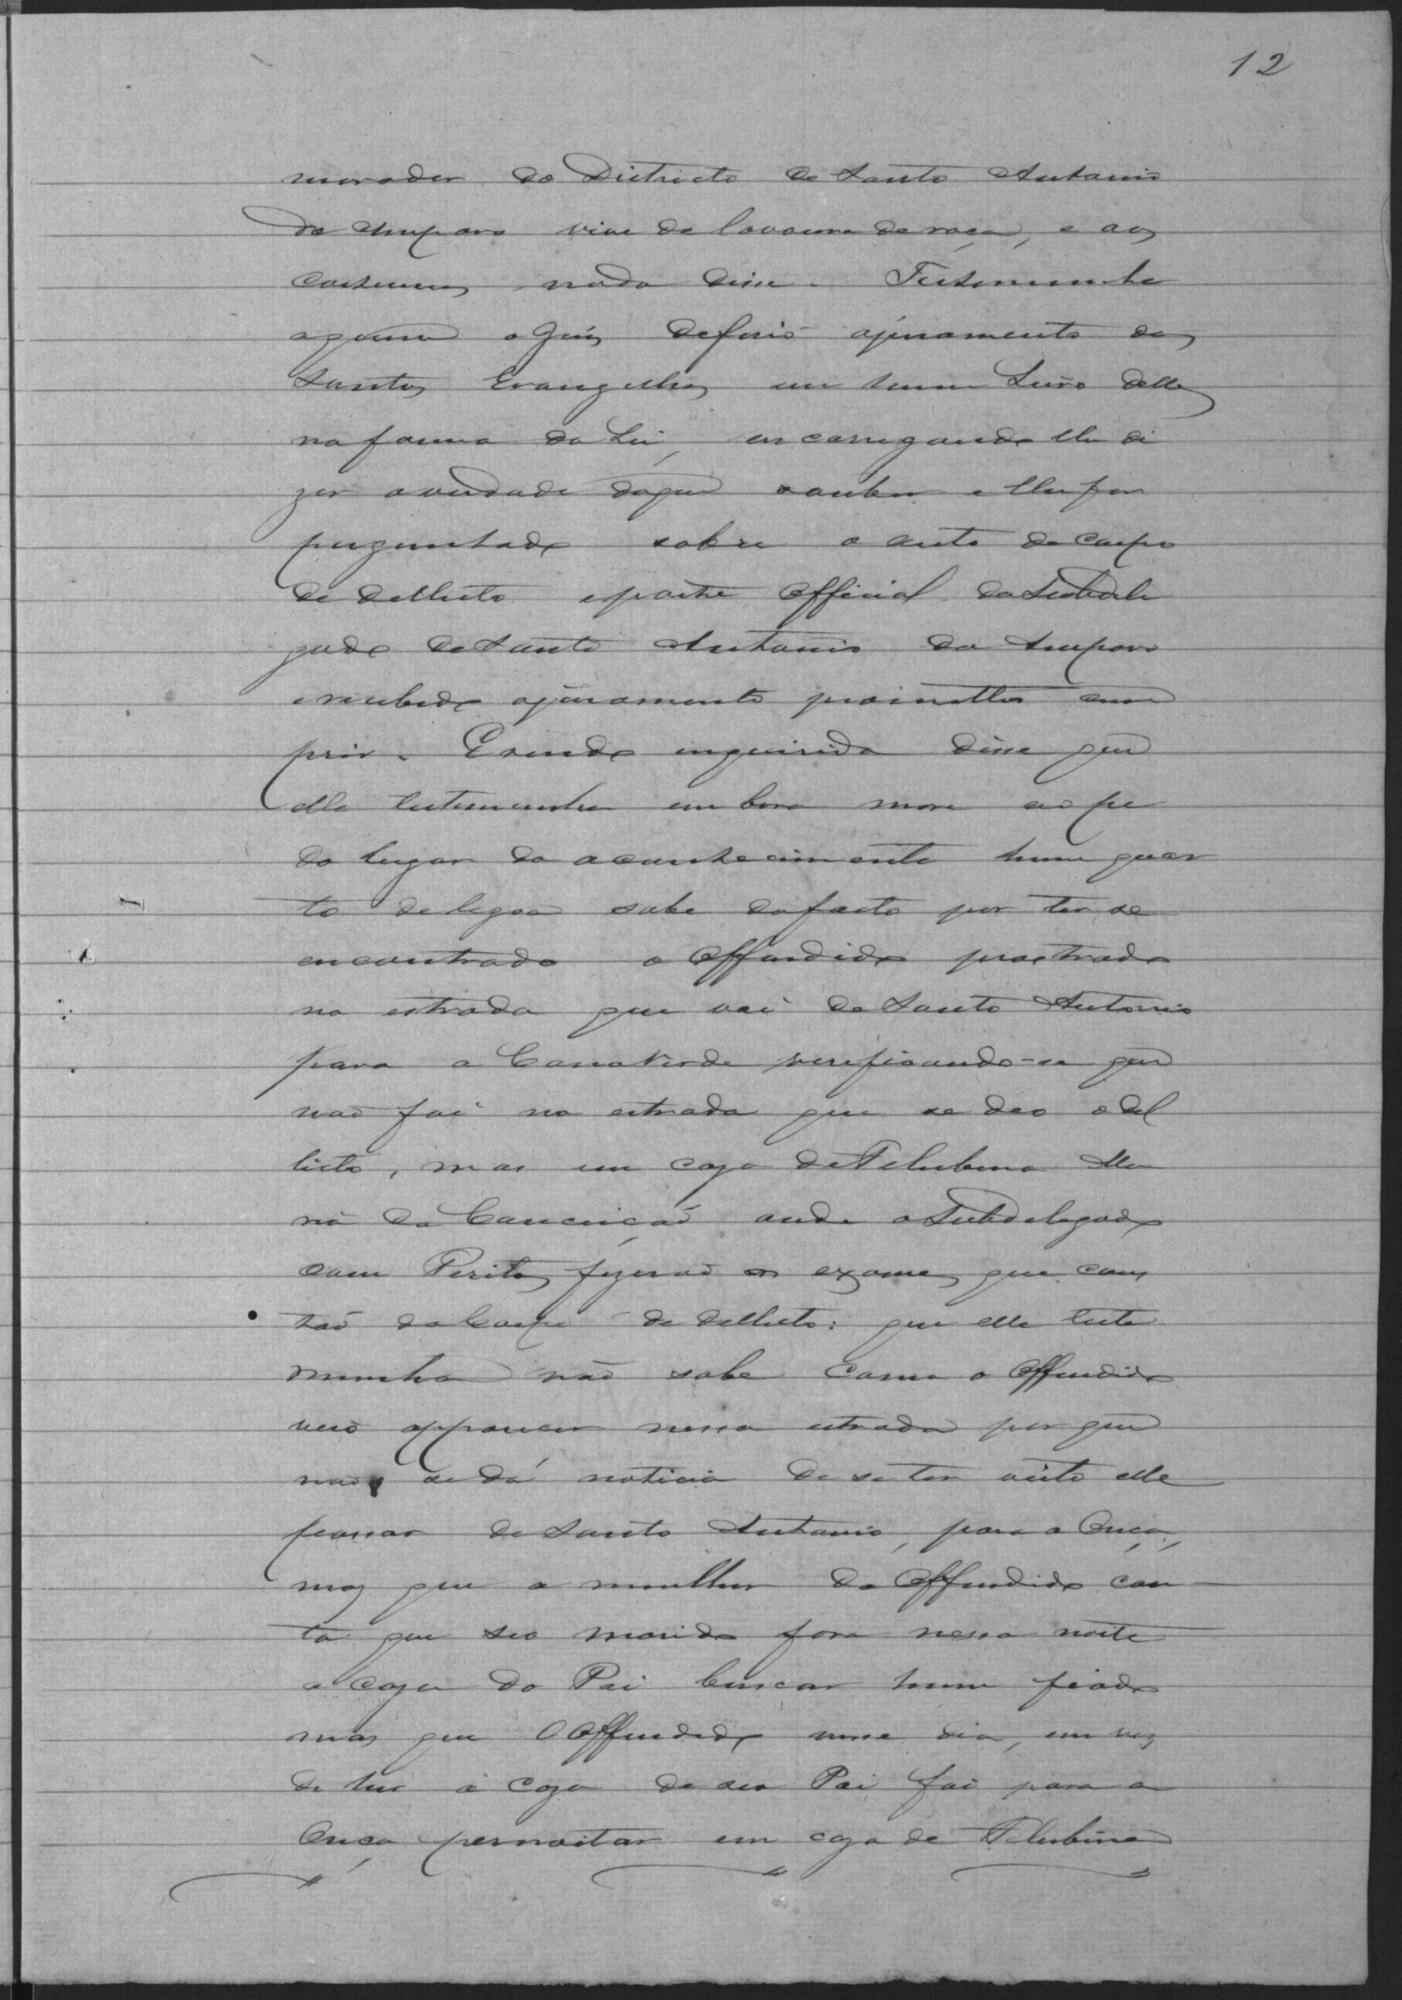 12
morador do Districto de Santo Antonio
do Amparo vive de lavoura de roça, e aos
costumes nada disse. Testemunha
aquem o Juis deferio ojuramento dos
Santos Evangelhos em hum Livro delles
na forma da Lei, encarregando lhe di
zer averdade doque souber e lhe for
perguntado sobre o auto de corpo
de dellicto eparte Official do Subdele
gado de Santo Antonio do Amparo
erecebido ojuramento prometteo cum
prir. Esendo inquirido disse que
elle testemunha embora more ao pe
do lugar do acontecimento hum quar
to de legoa sabe do facto por ter se
encontrado o Offendido prostrado
na estrada que vai de Santo Antonio
para a Cana Verde verificando-se que
naõ foi na estrada que se deo o del
licto, mas em caza de Felisbina Ma
ria da Conceiçaõ onde o Subdelegado
com Peritos fizeraõ os exames que cons
taõ do Corpo de dellicto: que elle teste
munha naõ sabe como o Offendido
veio apparecer nessa estrada por que
naõ se dá noticia de se ter visto elle
passar de Santo Antonio, para a Onça,
mas que a mulher do Offendido con
ta que seo marido fora nessa noite
a caza do Pai buscar hum fiado
mas que O Offendido nesse dia, em vez
de hir á caza de seo Pai foi para a
Onça pernoitar em caza de Felisbina